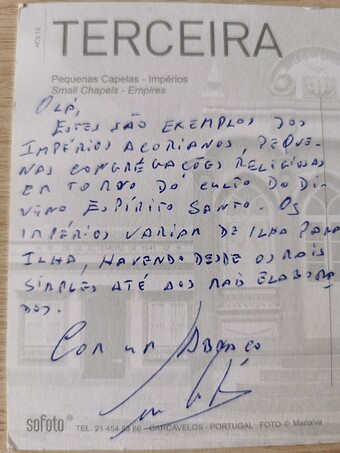 AC3/13
TERCEIRA
Pequenas Capelas - Impérios
Small Chapels - Empires
Olá,
ESTES SÃO EXEMPLOS DOS
IMPÉRIOS AÇORIANOS, PEQUE-
NAS CONGREGAÇÕES RELIGIOSAS
EM TORNO DO CULTO DO DI-
VINO ESPÍRITO SANTO. OS
IMPÉRIOS VARIAM DE ILHA PARA
ILHA, HAVENDO DESDE OS MAIS
SIMPLES ATÉ AOS MAIS ELABORA
DOS.
COM UM ABRAÇO
sofoto
TEL. 21 454 93 86 - CARCAVELOS - PORTUGAL FOTO © Marialva